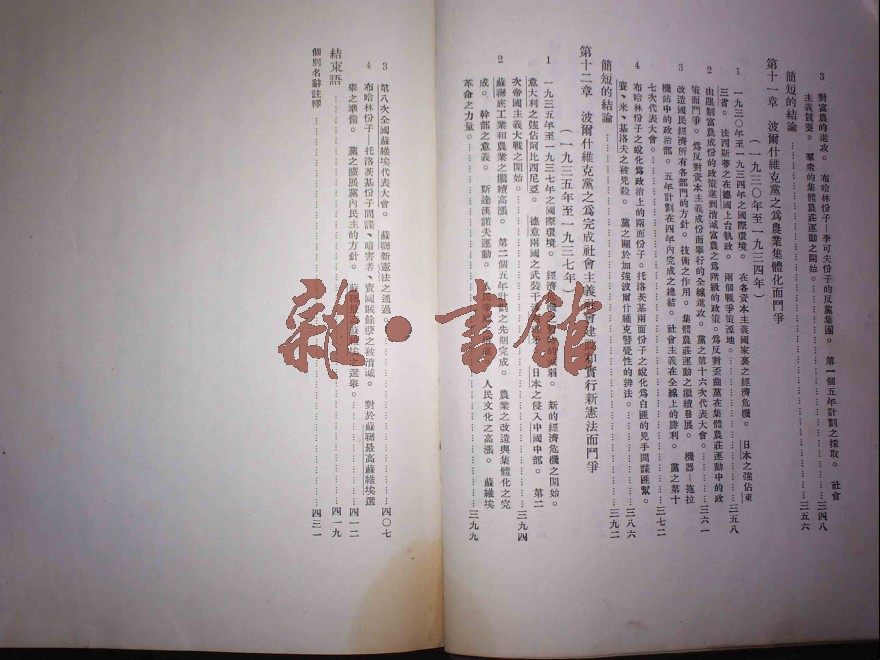 3 對富農的進攻。 布哈林份子—李可夫份子的反黨集團。 第一個五年計劃之採取。 社會
主義競賽。 羣衆的集體農莊運動之開始。……三四八
簡短的結論……三五六
第十一章 波爾什維克黨之爲農業集體化而鬥爭
(一九三〇年至一九三四年)
1 一九三〇年至一九三四年之國際環境。 在各資本主義國家裏之經濟危機。 日本之強佔東
三省。 法西斯蒂之在德國上台執政。 兩個戰爭策源地。……三五八
2 由限制富農成份的政策進到消滅富農之爲階級的政策。爲反對歪曲黨在集體農莊運動中的政
策而鬥爭。 爲反對資本主義成份而舉行的全線進攻。 黨之第十六次代表大會。……三六一
3 改造國民經濟所有各部門的方針。 技術之作用。 集體農莊運動之繼續發展。 機器—拖拉
機站中的政治部。 五年計劃在四年內完成之總結。 社會主義在全線上的勝利。 黨之第十
七次代表大會。……三七二
4 布哈林份子之蛻化爲政治上的兩面份子。托洛茨基兩面份子之蛻化爲白匪的兇手間諜匪幫。
賽、米、基洛夫之被兇殺。 黨之關於加強波爾什維克警覺性的辦法。……三八六
簡短的結論……三九二
第十二章 波爾什維克黨之爲完成社會主義社會建設和實行新憲法而鬥爭
(一九三五年至一九三七年)
1 一九三五年至一九三七年之國際環境。 經濟危機之 新的經濟危機之開始。
意大利之強佔阿比西尼亞。 德意兩國之武裝干 日本之侵入中國中部。 第二
次帝國主義大戰之開始。……三九四
2 蘇聯底工業和農業之繼續高漲。 第二個五年計劃之先期完成。 農業之改造與集體化之完
成。 幹部之意義。 斯達漢諾夫運動。 人民文化之高漲。 蘇維埃
革命之力量。……三九九
3 第八次全國蘇維埃代表大會。 蘇聯新憲法之通過。……四〇七
4 布哈林份子—托洛茨基份子間諜、暗害者、賣國賊餘孽之被消滅。 對於蘇聯最高蘇維埃選
舉之準備。 黨之擴展黨內民主的方針。 蘇聯最高蘇維埃之選舉。……四一二
結束語……四一九
個別名辭註釋……四三一
雜·書館